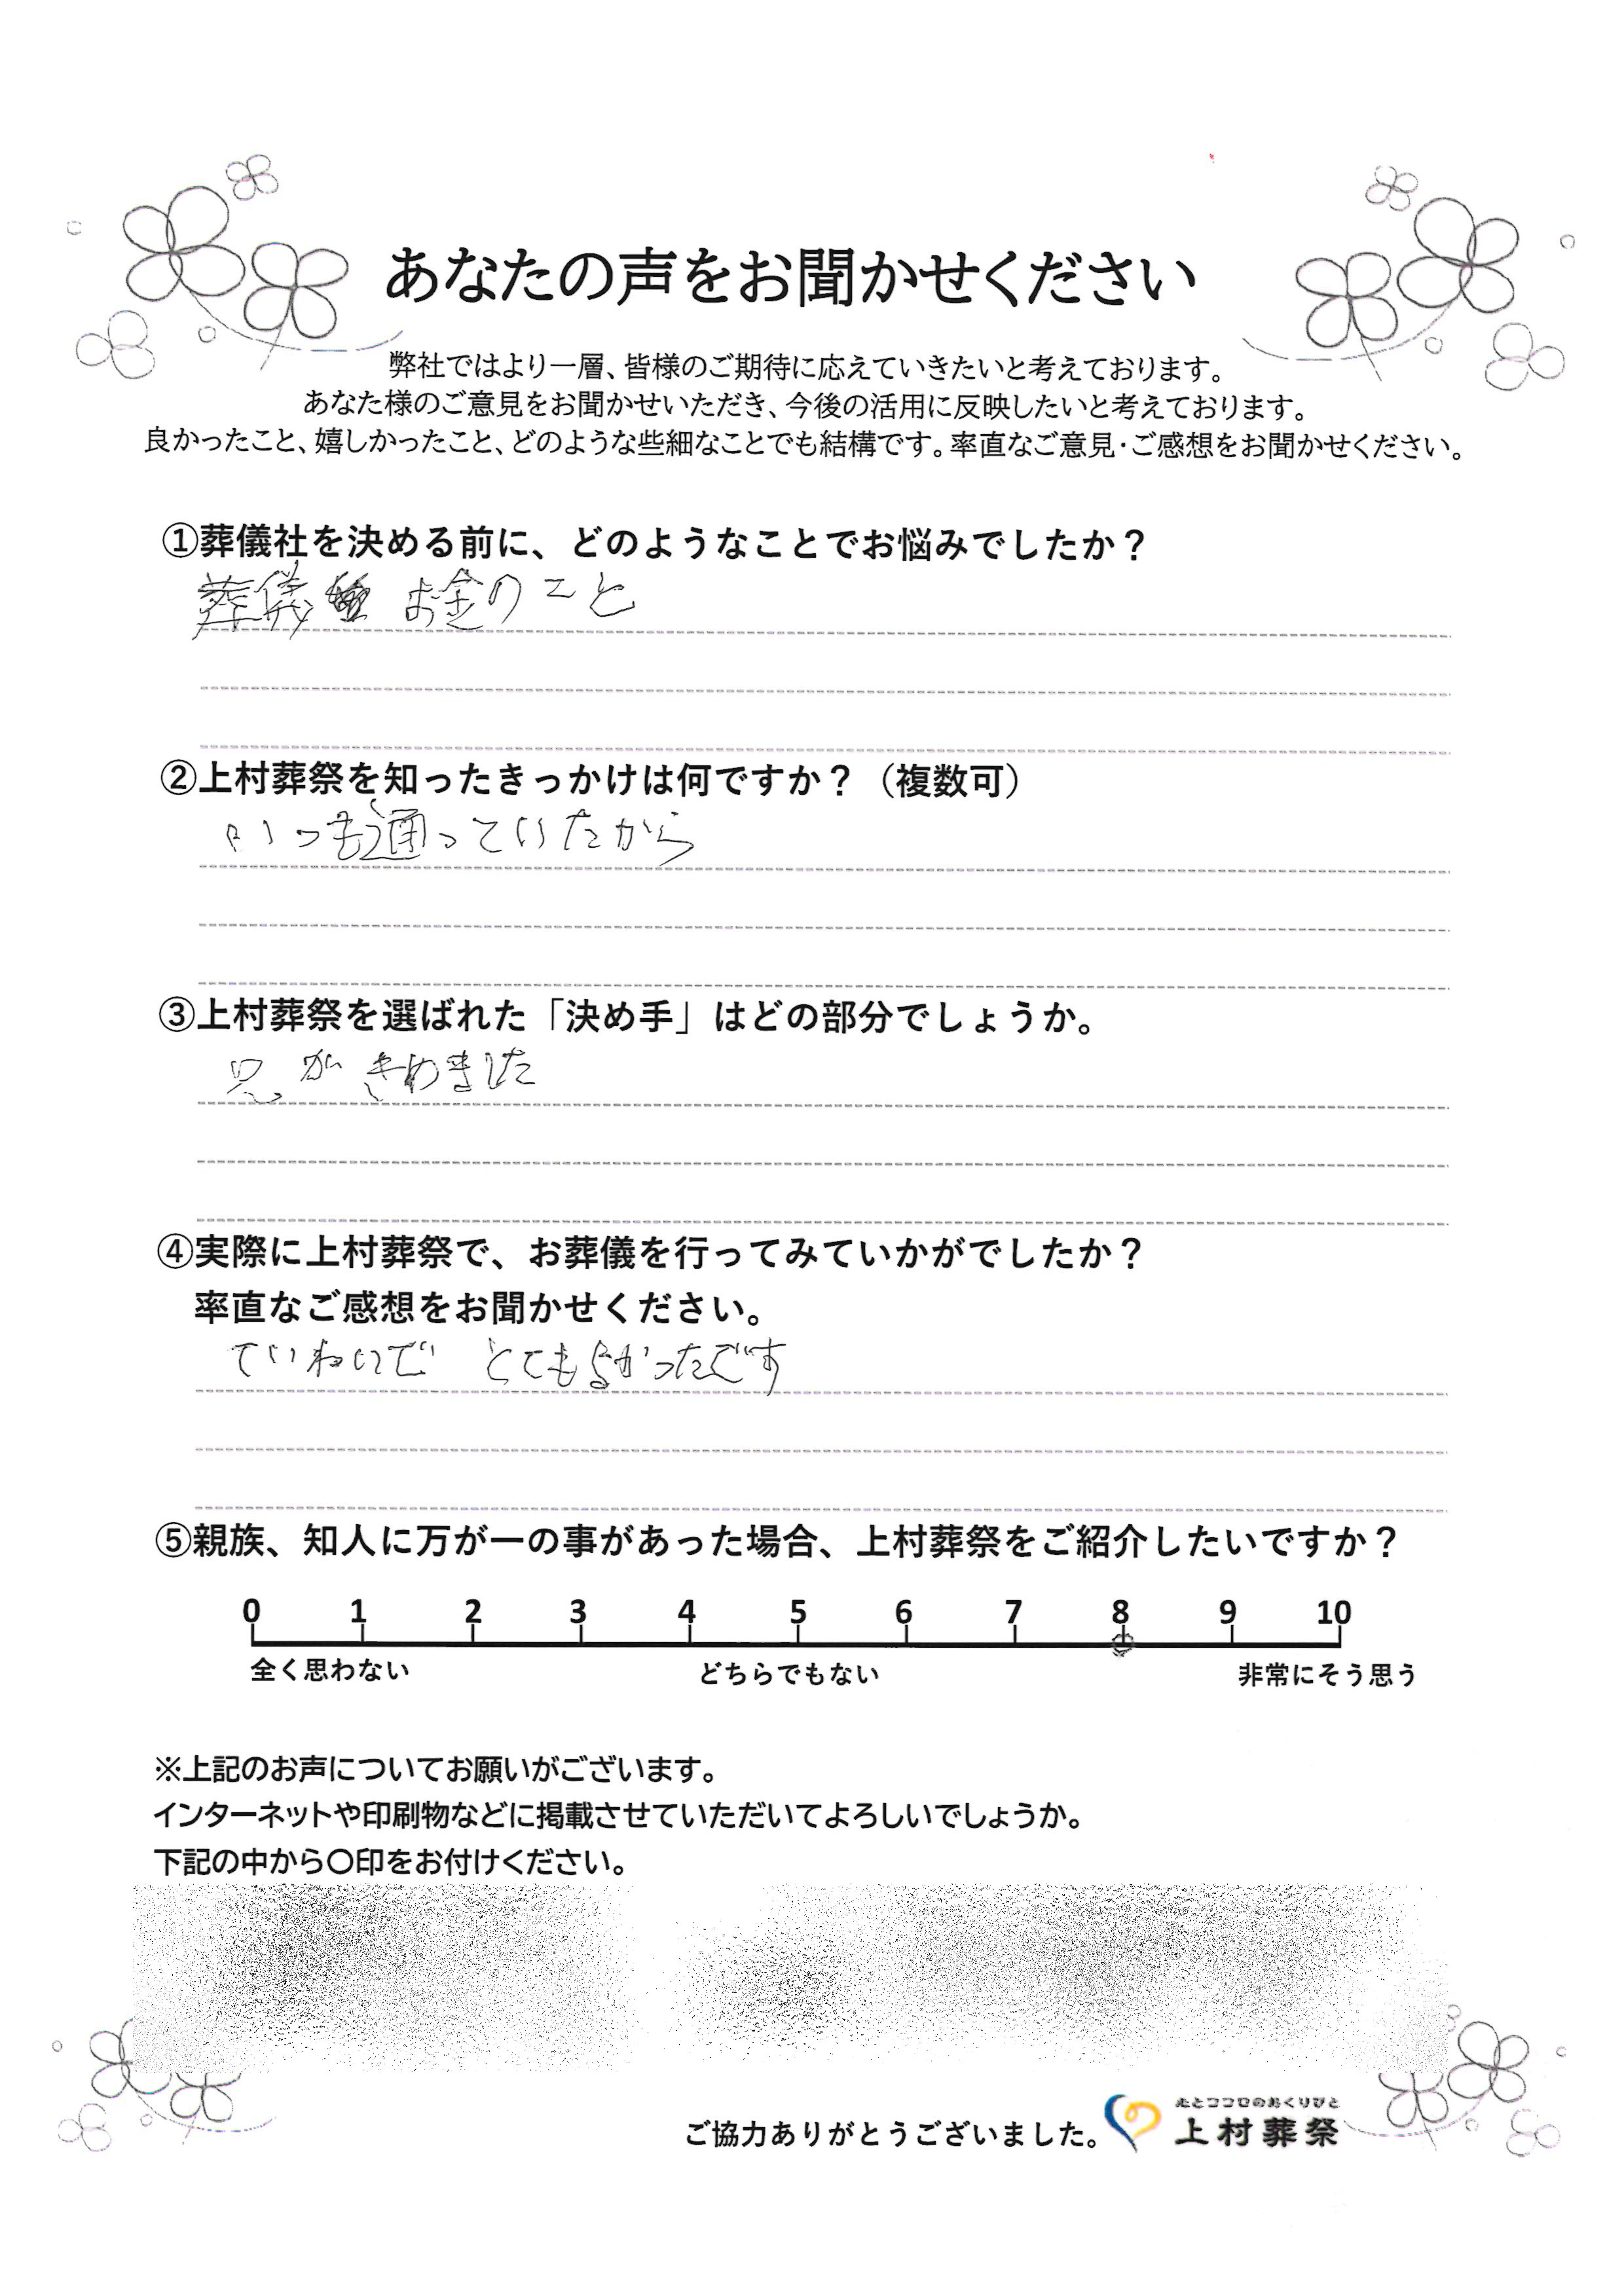 あなたの声をお聞かせください
弊社ではより一層、皆様のご期待に応えていきたいと考えております。
あなた様のご意見をお聞かせいただき、今後の活用に反映したいと考えております。
良かったこと、嬉しかったこと、どのような些細なことでも結構です。率直なご意見・ご感想をお聞かせください。
①葬儀社を決める前に、どのようなことでお悩みでしたか？
葬儀 お金のこと
②上村葬祭を知ったきっかけは何ですか？（複数可）
いつも通っていたから
③上村葬祭を選ばれた「決め手」はどの部分でしょうか。
兄がきめました
④実際に上村葬祭で、お葬儀を行ってみていかがでしたか？
率直なご感想をお聞かせください。
ていねいで とてもよかったです
⑤親族、知人に万が一の事があった場合、上村葬祭をご紹介したいですか？
0 1 2 3 4 5 6 7 8 9 10
全く思わない どちらでもない 非常にそう思う
※上記のお声についてお願いがございます。
インターネットや印刷物などに掲載させていただいてよろしいでしょうか。
下記の中から〇印をお付けください。
ご協力ありがとうございました。
上村葬祭